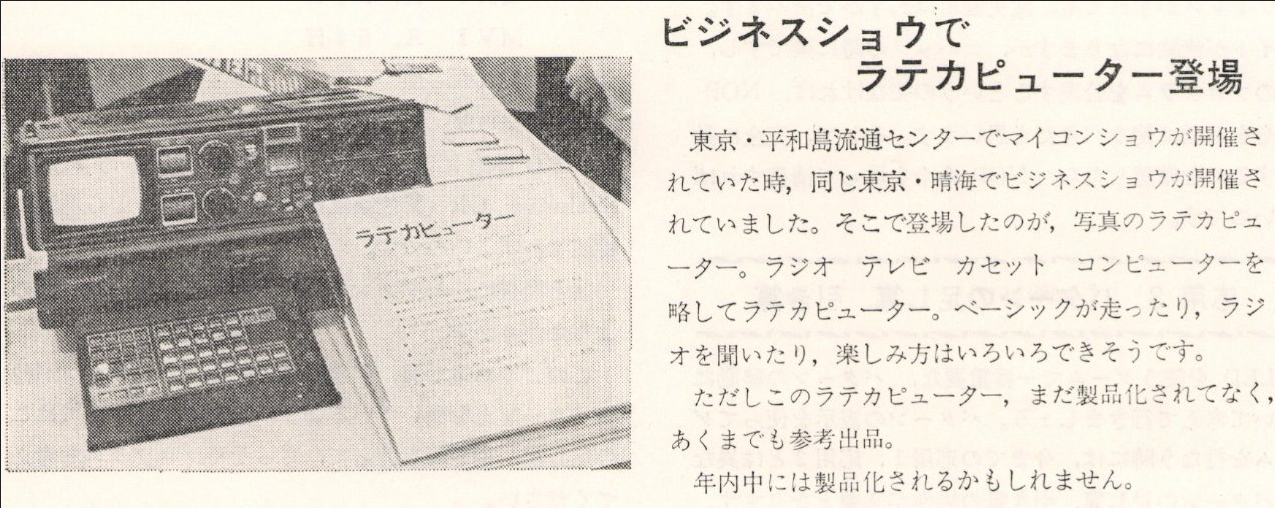 ビジネスショウで
ラテカピューター登場
東京・平和島流通センターでマイコンショウが開催さ
れていた時，同じ東京・晴海でビジネスショウが開催さ
れていました。そこで登場したのが，写真のラテカピュ
ーター。ラジオ　テレビ　カセット　コンピューターを
略してラテカピューター。ベーシックが走ったり，ラジ
オを聞いたり，楽しみ方はいろいろできそうです。
ただしこのラテカピューター，まだ製品化されてなく，
あくまでも参考出品。
年内中には製品化されるかもしれません。
ラテカピューター